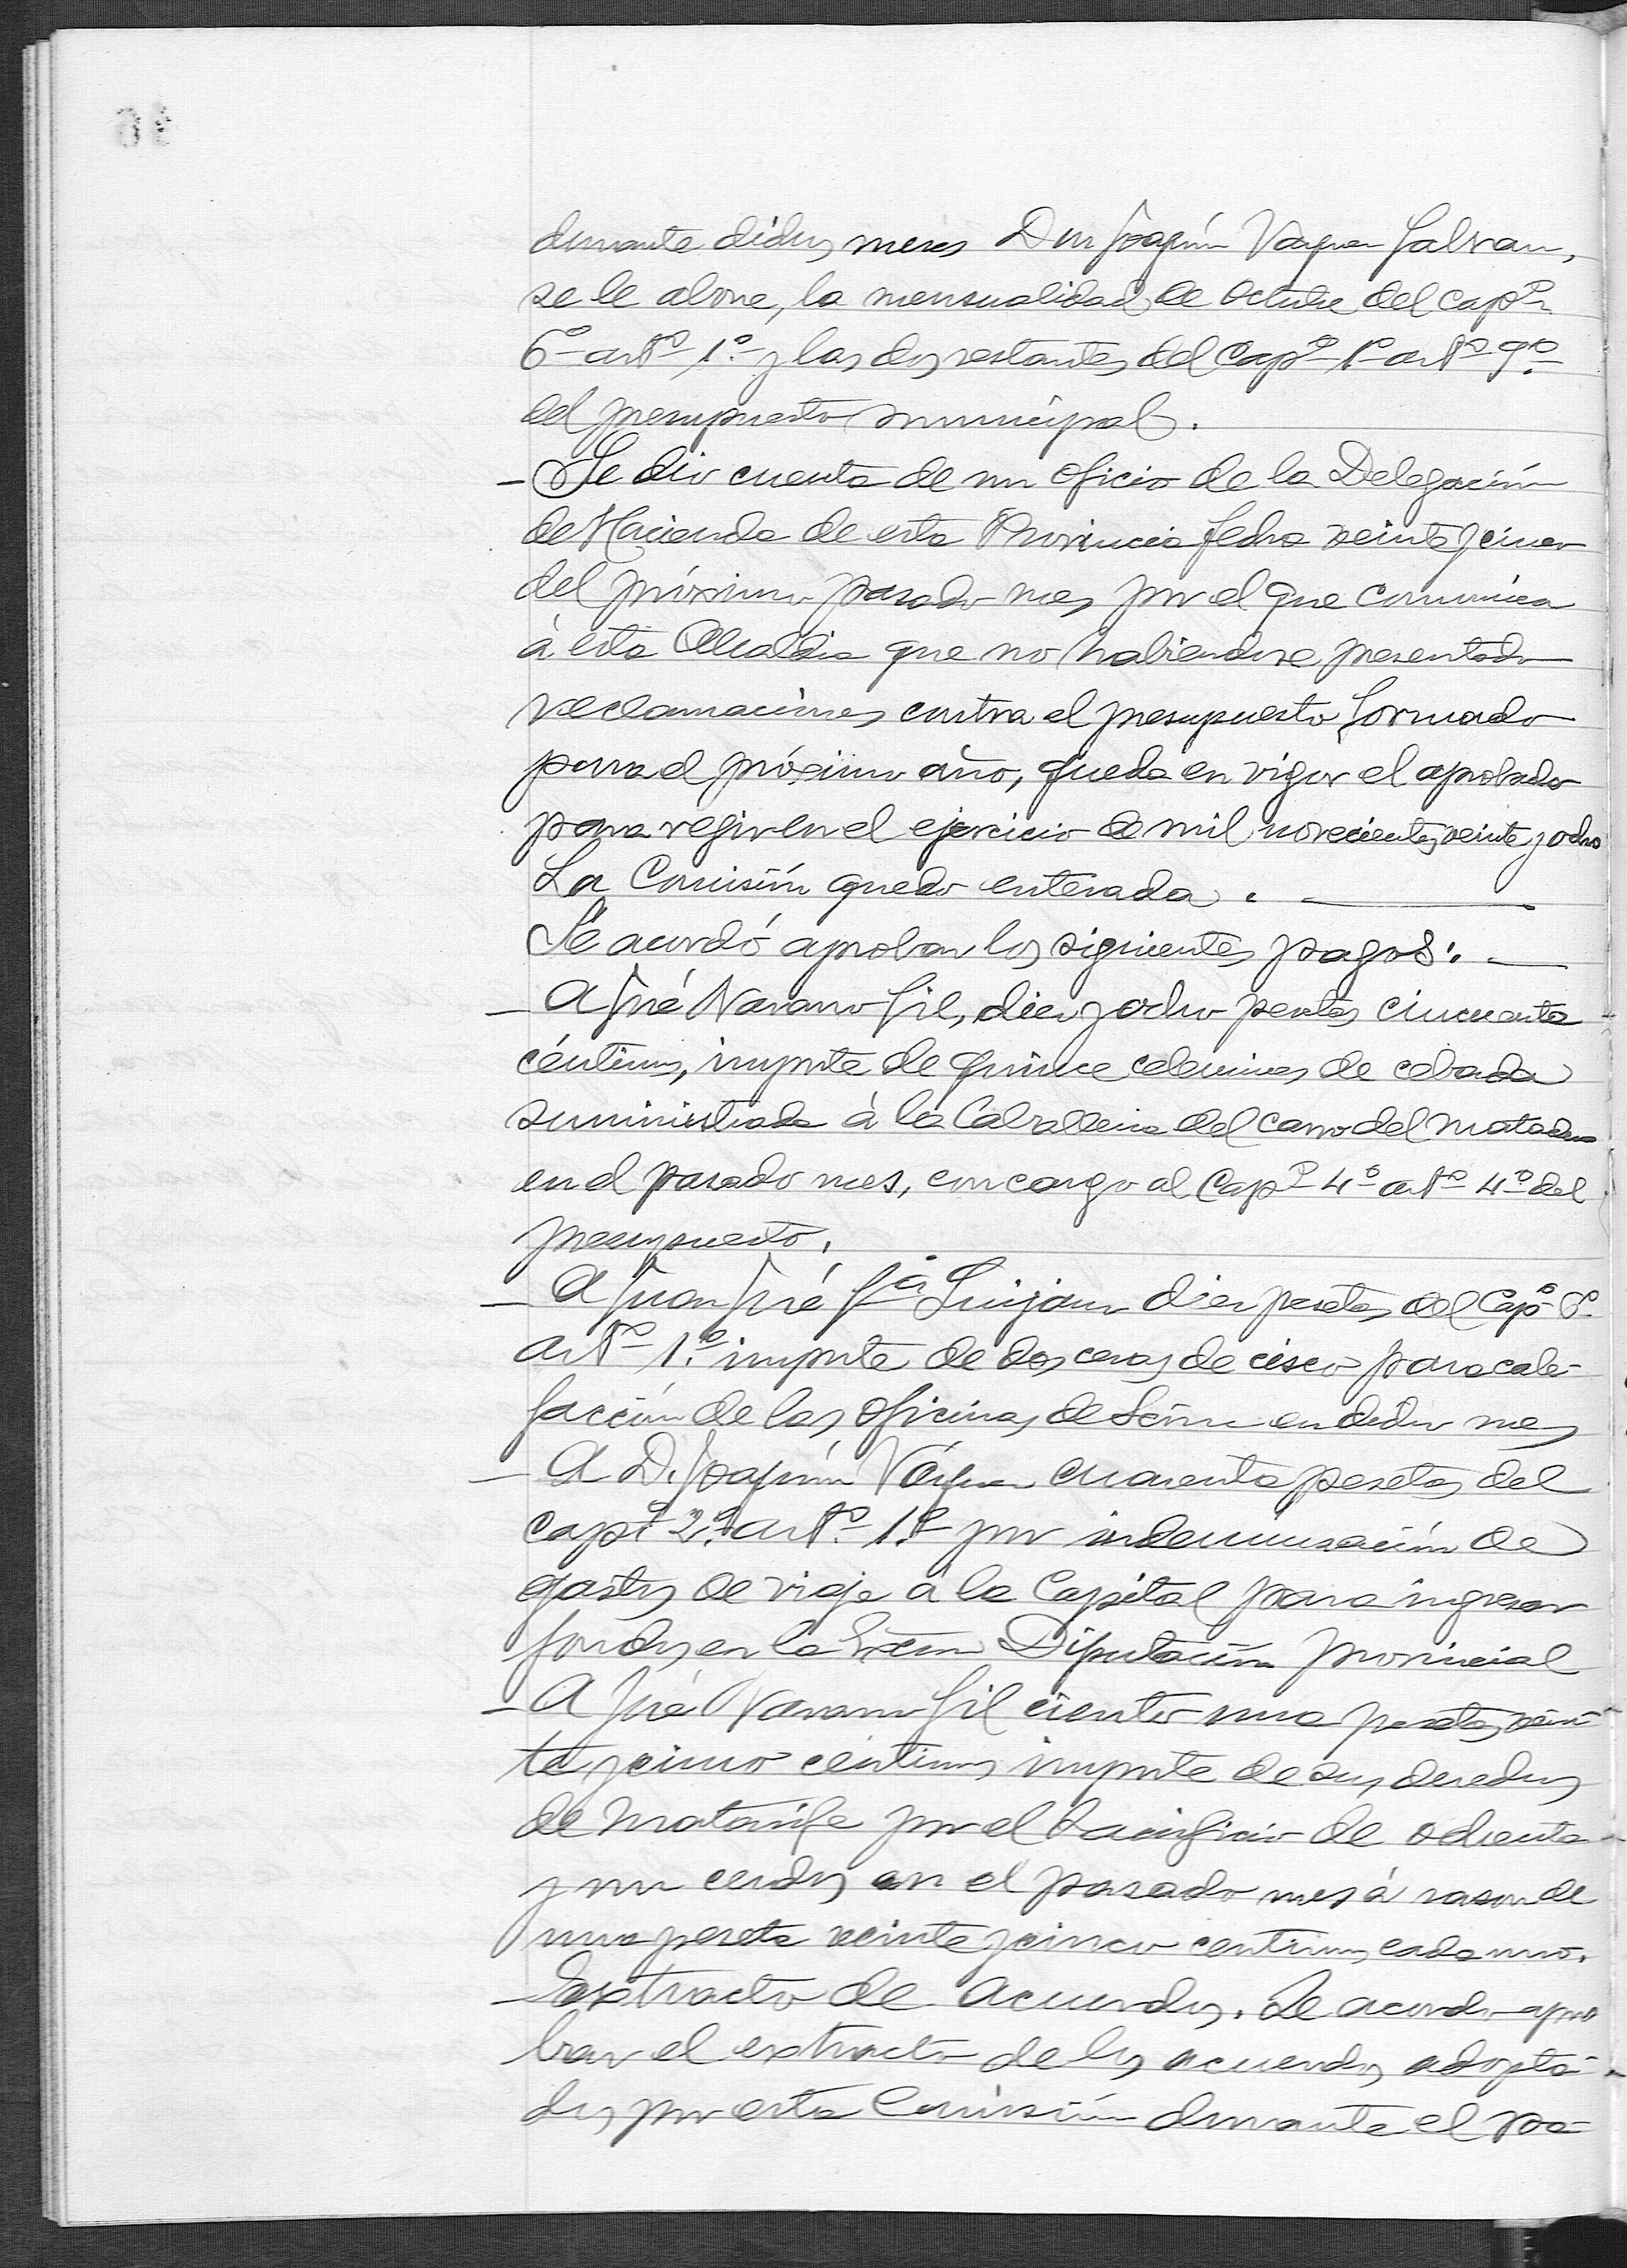 durante dichos meses Don Joaquín Vazquez Galvan,
se le abone, la mensualidad de Octubre del capº
6º artº 1º y las dos restantes del Capº 1º artº 9º
del presupuesto municipal.
- Se dio cuenta de un oficio de la Delegación
de Hacienda de esta Provincia fecha veinte y cinco
del próximo pasado mes por el que comunica
á esta Alcaldia que no habiendose presentado
reclamaciones contra el presupuesto formado
para el próximo año, queda en vigor el aprobado
para regir en el ejercicio de mil novecientos veinte y ocho
La Comisión quedo enterada.
Se acordó aprobar los siguientes pagos:
- A José Navarro Gil, diez y ocho pesetas cincuenta
céntimos, importe de quince celemines de cebada
suministrada á la Caballeria del carro del matadero
en el pasado mes, con cargo al Capº 4º artº 4º del
presupuesto.
- A Juan José Gª Luijan diez pesetas del Capº 6º
artº 1º importe de dos ceras de cisco para cale-
facción de las oficinas de Srio. en dicho mes
- A D. Joaquín Vázquez cuarenta pesetas del
capº 2º artº 1º por indemnisación de
gastos de viaje a la Capital para ingresar
fondos en la Excma Diputación provincial
- A José Navarro Gil ciento una pesetas vein-
te y cinco céntimos importe de sus derechos
de matarife por el sacrificio de ochenta
y un cerdos en el pasado mes á rason de
una peseta veinte y cinco centimos cada uno.
- Extracto de acuerdos. Se acordo apro
bar el extracto de los acuerdos adopta-
dos por esta Comisión durante el pa-